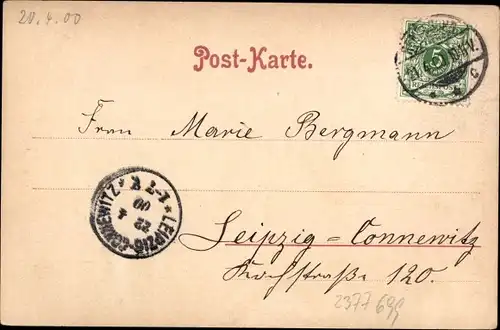 20.4.00
Post-Karte.
5
Frau Marie Bergmann
LEIPZIG-CONNEWITZ
22 4
00
Leipzig-Connewitz
Kochstraße 120.
2377695